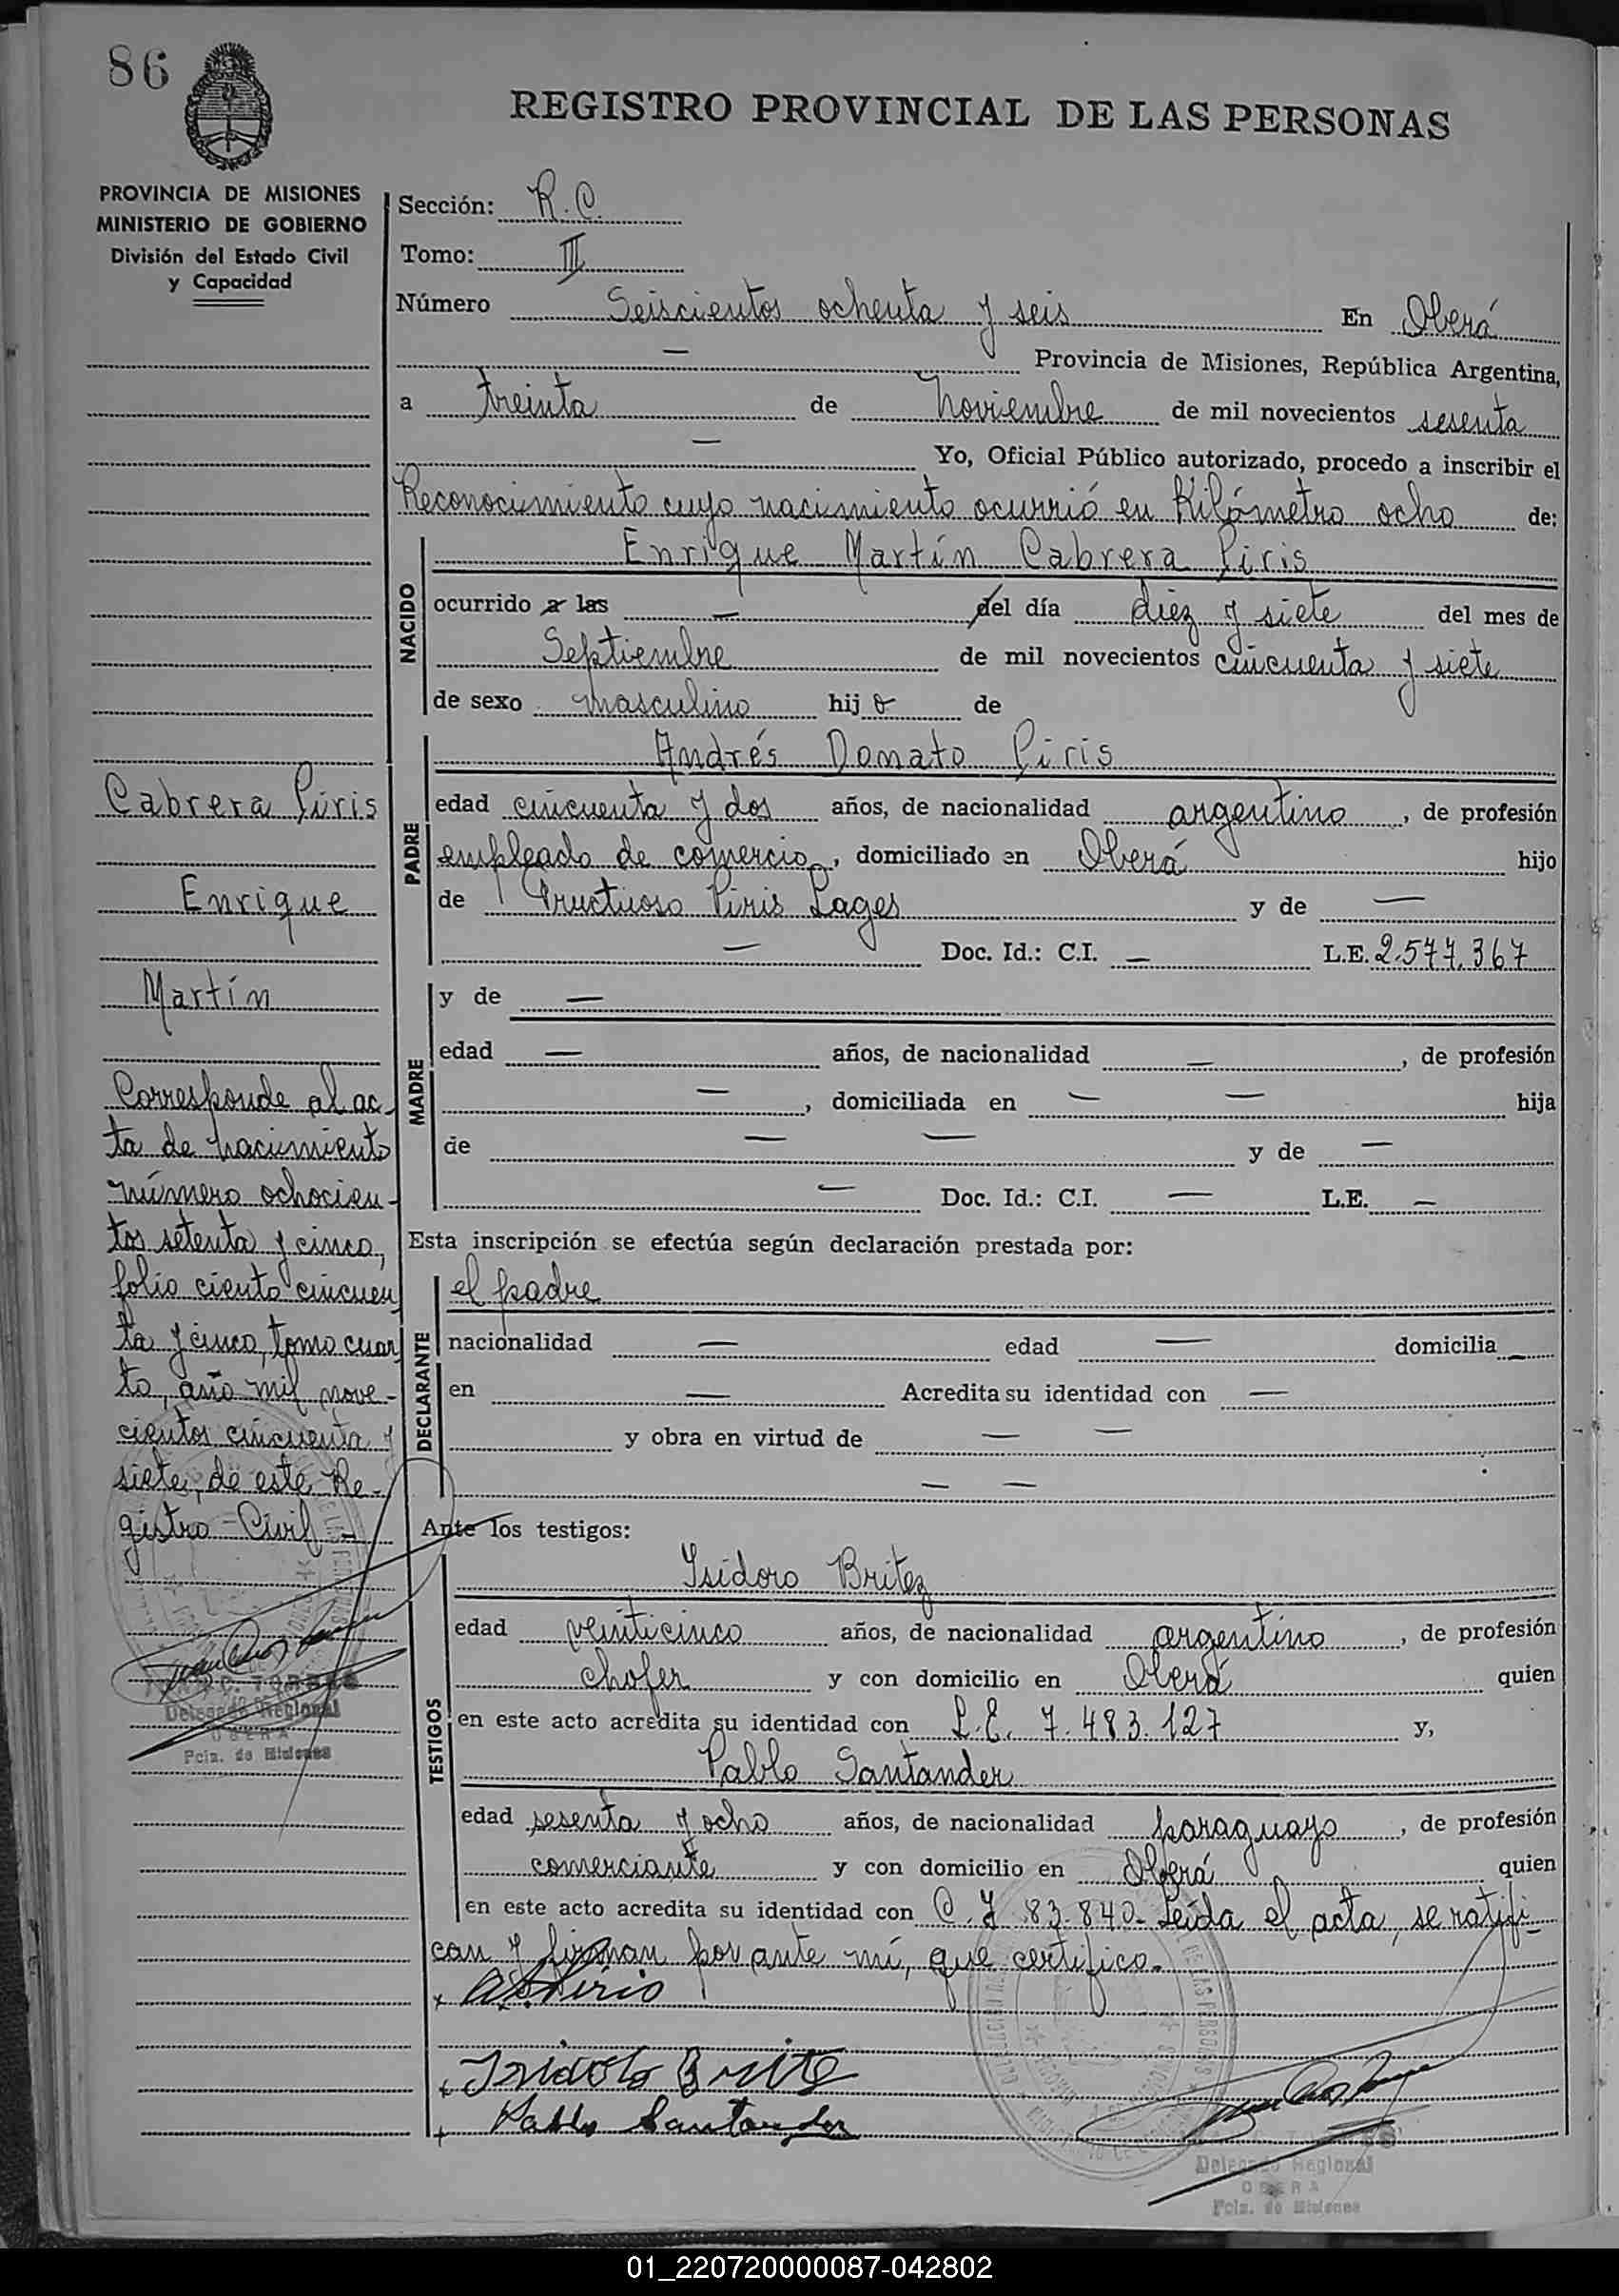 86
REGISTRO PROVINCIAL DE LAS PERSONAS
PROVINCIA DE MISIONES
MINISTERIO DE GOBIERNO
División del Estado Civil
y Capacidad
Sección: R.C.
Tomo: II
Número Seiscientos ochenta y seis En Oberá
— Provincia de Misiones, República Argentina,
a treinta de Noviembre de mil novecientos sesenta
— Yo, Oficial Público autorizado, procedo a inscribir el
Reconocimiento cuyo nacimiento ocurrió en Kilómetro ocho de:
NACIDO
Enrique Martín Cabrera Piris
ocurrido a las — del día diez y siete del mes de
Septiembre de mil novecientos cincuenta y siete
de sexo masculino hijo de
PADRE
Andrés Donato Piris
edad cincuenta y dos años, de nacionalidad argentino, de profesión
empleado de comercio, domiciliado en Oberá hijo
de Fructuoso Piris Lages y de —
— Doc. Id.: C.I. — L.E. 2.577.367
MADRE
y de —
edad — años, de nacionalidad —, de profesión
—, domiciliada en — — hija
de — — y de —
— Doc. Id.: C.I. — L.E. —
Esta inscripción se efectúa según declaración prestada por:
DECLARANTE
el padre
nacionalidad — edad — domicilia —
en — Acredita su identidad con —
y obra en virtud de — —
— —
Ante los testigos:
TESTIGOS
Isidoro Britez
edad veinticinco años, de nacionalidad argentino, de profesión
chofer y con domicilio en Oberá quien
en este acto acredita su identidad con L.E. 7.483.127 y,
Pablo Santander
edad sesenta y ocho años, de nacionalidad paraguayo, de profesión
comerciante y con domicilio en Oberá quien
en este acto acredita su identidad con C.I 83.840.- Leída el acta, se ratifi-
can y firman por ante mí, que certifico.-
Isidoro Brite
Pablo Santander
Delegado Regional
OBERA
Pcia. de Misiones
Cabrera Piris
Enrique
Martín
Corresponde al ac-
ta de nacimiento
número ochocien-
tos setenta y cinco,
folio ciento cincuen
ta y cinco, tomo cuar
to, año mil nove-
cientos cincuenta y
siete, de este Re-
gistro Civil.-
C. TORRES
Delegado Regional
OBERA
Pcia. de Misiones
01_220720000087-042802